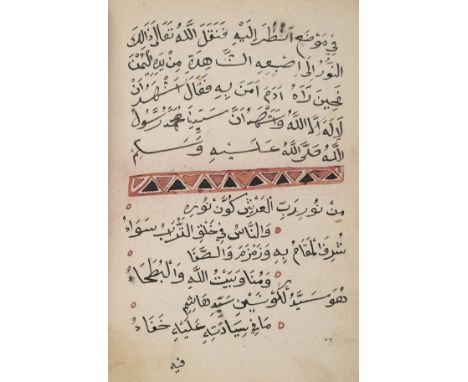 في موضع انظر إليه فنقل الله تعالى ذلك
النور إلى اصبعه الشاهدة من يده اليمن
فحين رآه آدم آمن به فقال اشهد ان
لا إله إلا الله واشهد ان سيدنا محمد رسول
الله صلى الله عليه وسلم
من نور رب العرش كون نوره
والناس في خلق التراب سواء
شرف المقام به وزمزم والصفا
ومنا وبيت الله والبطحاء
هو سيد الكونين سيد هاشم
ما في سيادته عليه خفاء
فيه